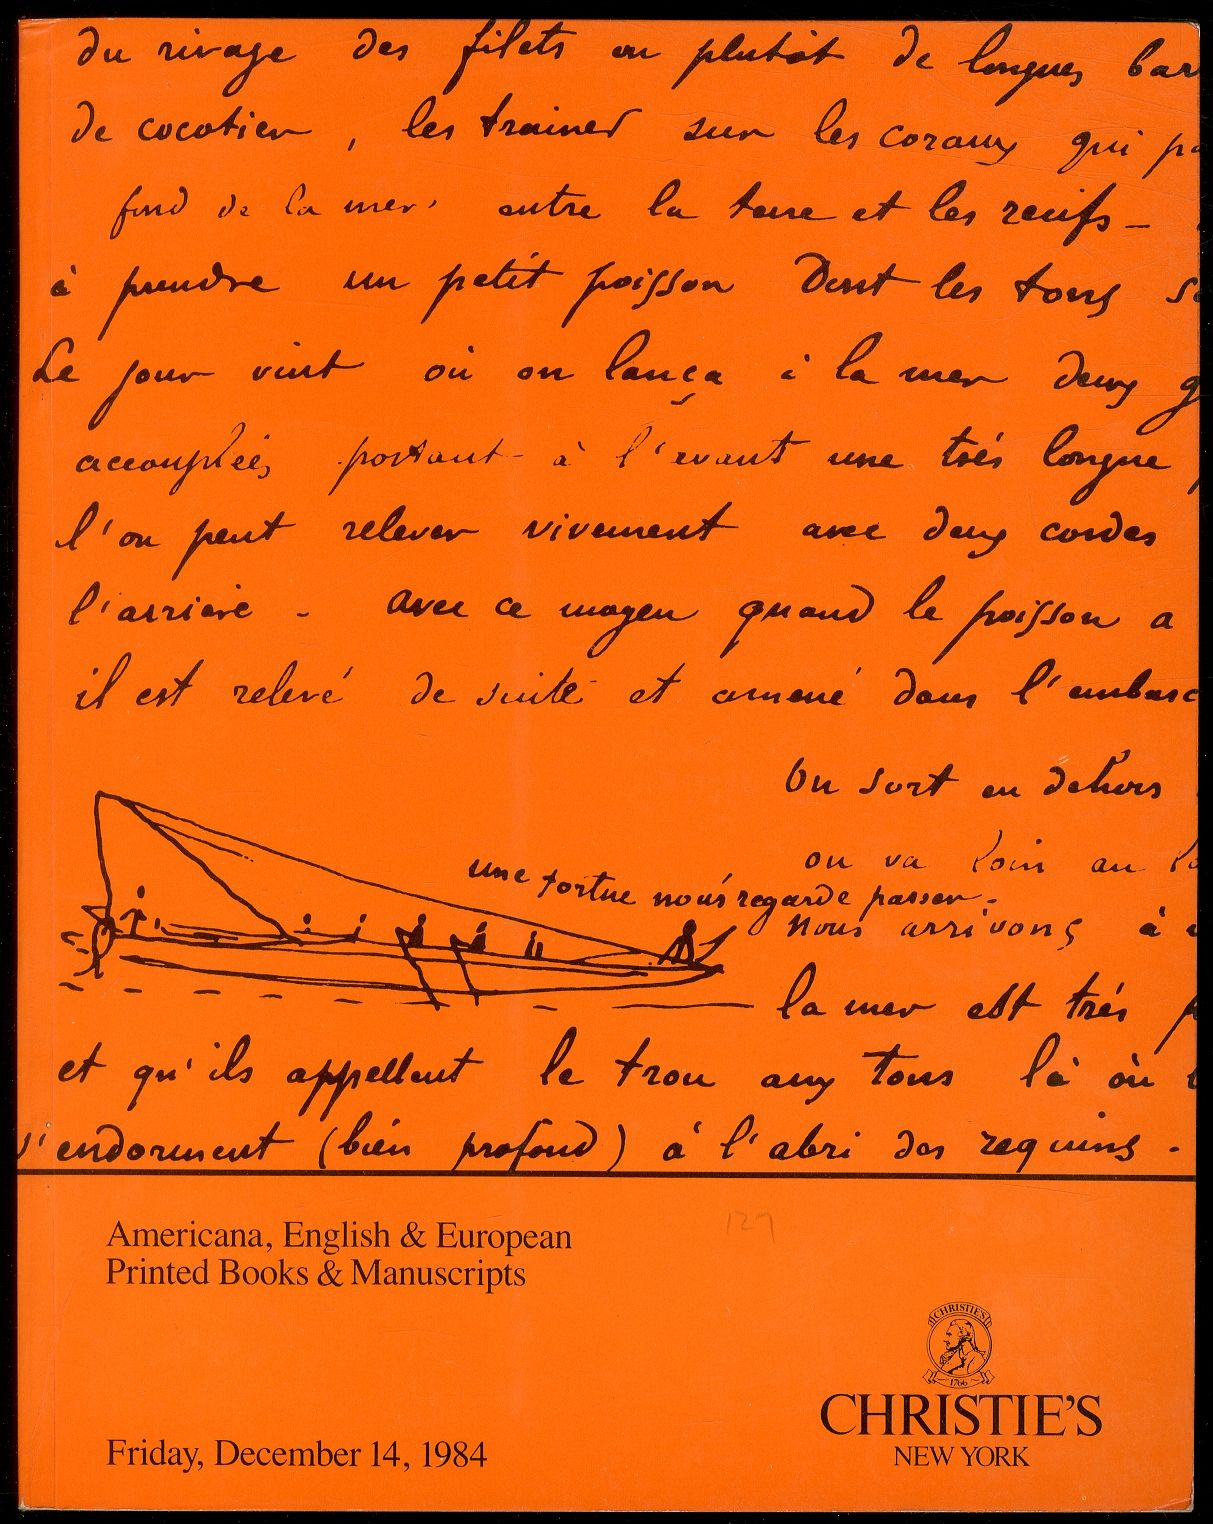 du rivage des filets ou plutôt de longues bar
de cocotier, les trainer sur les coraux qui pa
fond de la mer entre la terre et les recifs —
à prendre un petit poisson Dont les tons so
Le jour vint où on lança à la mer deux g
accouplées portant à l'avant une très longue
l'on peut relever vivement avec deux cordes
l'arrière - avec ce moyen quand le poisson a
il est relevé de suite et amené dans l'embarc
On sort en dehors
on va loin au la
une tortue nous regarde passer -
Nous arrivons à
la mer est très p
et qu'ils appellent le trou aux Tons là où
s'endorment (bien profond) à l'abri des requins -
127
Americana, English & European
Printed Books & Manuscripts
CHRISTIE'S
1766
CHRISTIE'S
NEW YORK
Friday, December 14, 1984